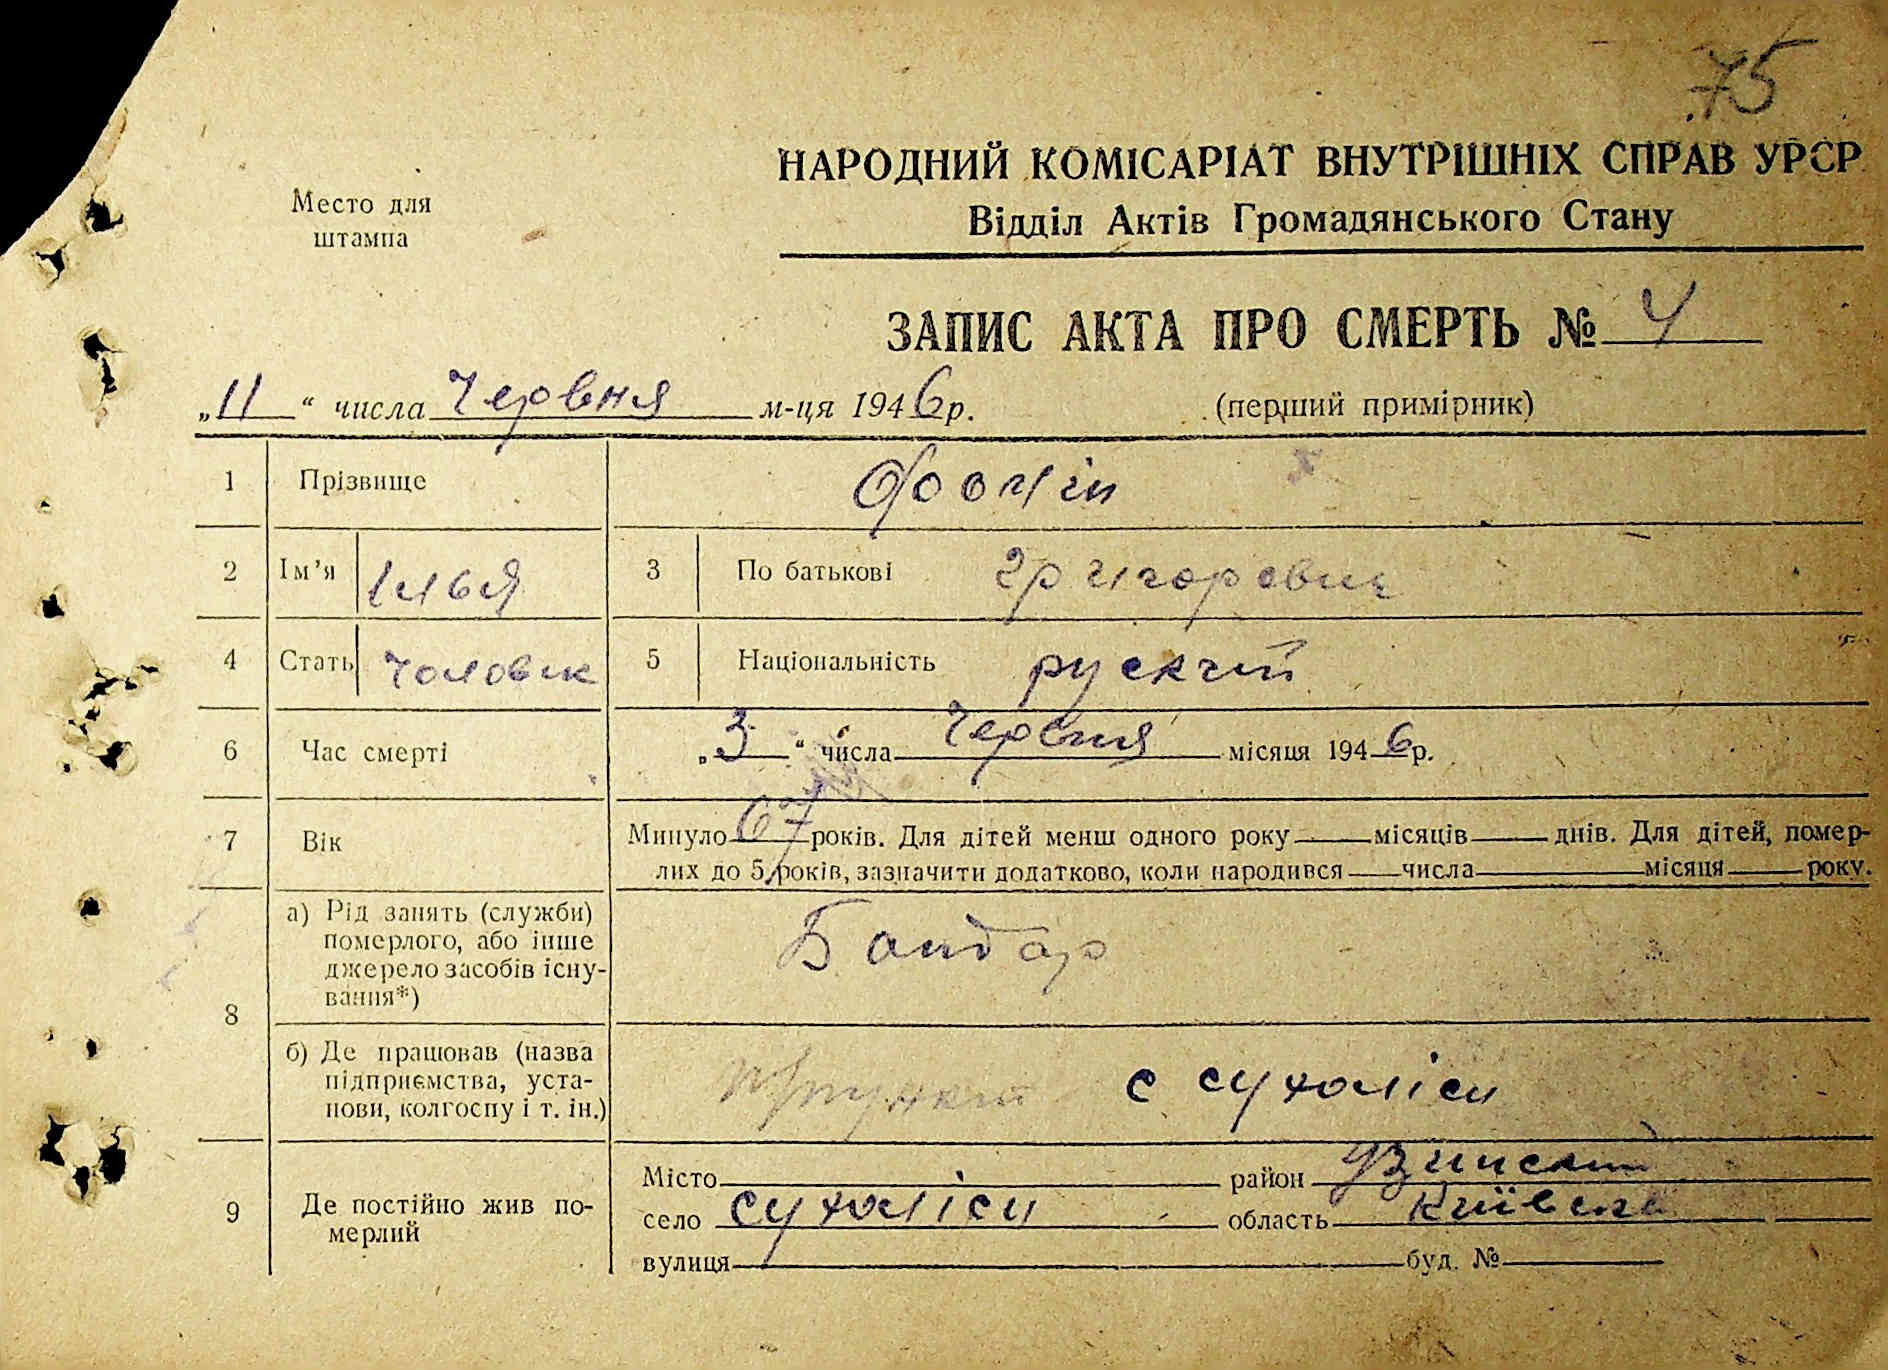 75
НАРОДНИЙ КОМІСАРІАТ ВНУТРІШНІХ СПРАВ УРСР
Відділ Актів Громадянського Стану
Место для
штампа
ЗАПИС АКТА ПРО СМЕРТЬ № 4
„11“ числа Червня м-ця 1946 р.
(перший примірник)
1 Прізвище Фомін
2 Ім’я Ілья 3 По батькові Григоревич
4 Стать Чоловік 5 Національність рускчий
6 Час смерті „3“ числа Червня місяця 1946 р.
7 Вік Минуло 67 років. Для дітей менш одного року місяців днів. Для дітей, помер-
лих до 5 років, зазначити додатково, коли народився числа місяця року.
8 а) Рід занять (служби)
померлого, або інше
джерело засобів існу-
вання*)
Бондар
б) Де працював (назва
підприємства, уста-
нови, колгоспу і т. ін.)
с сухоліси
9 Де постійно жив по-
мерлий
Місто район Узинский
село сухоліси область Київска
вулиця буд. №